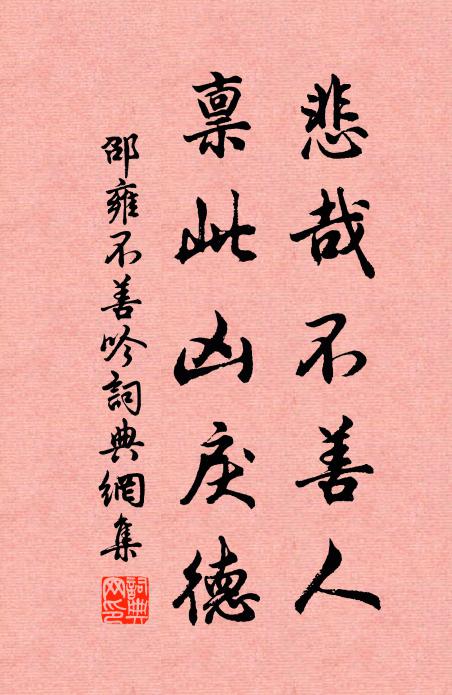 悲哉不善人
稟此凶戾德
邵雍不善吟詞典網集
詞典網印